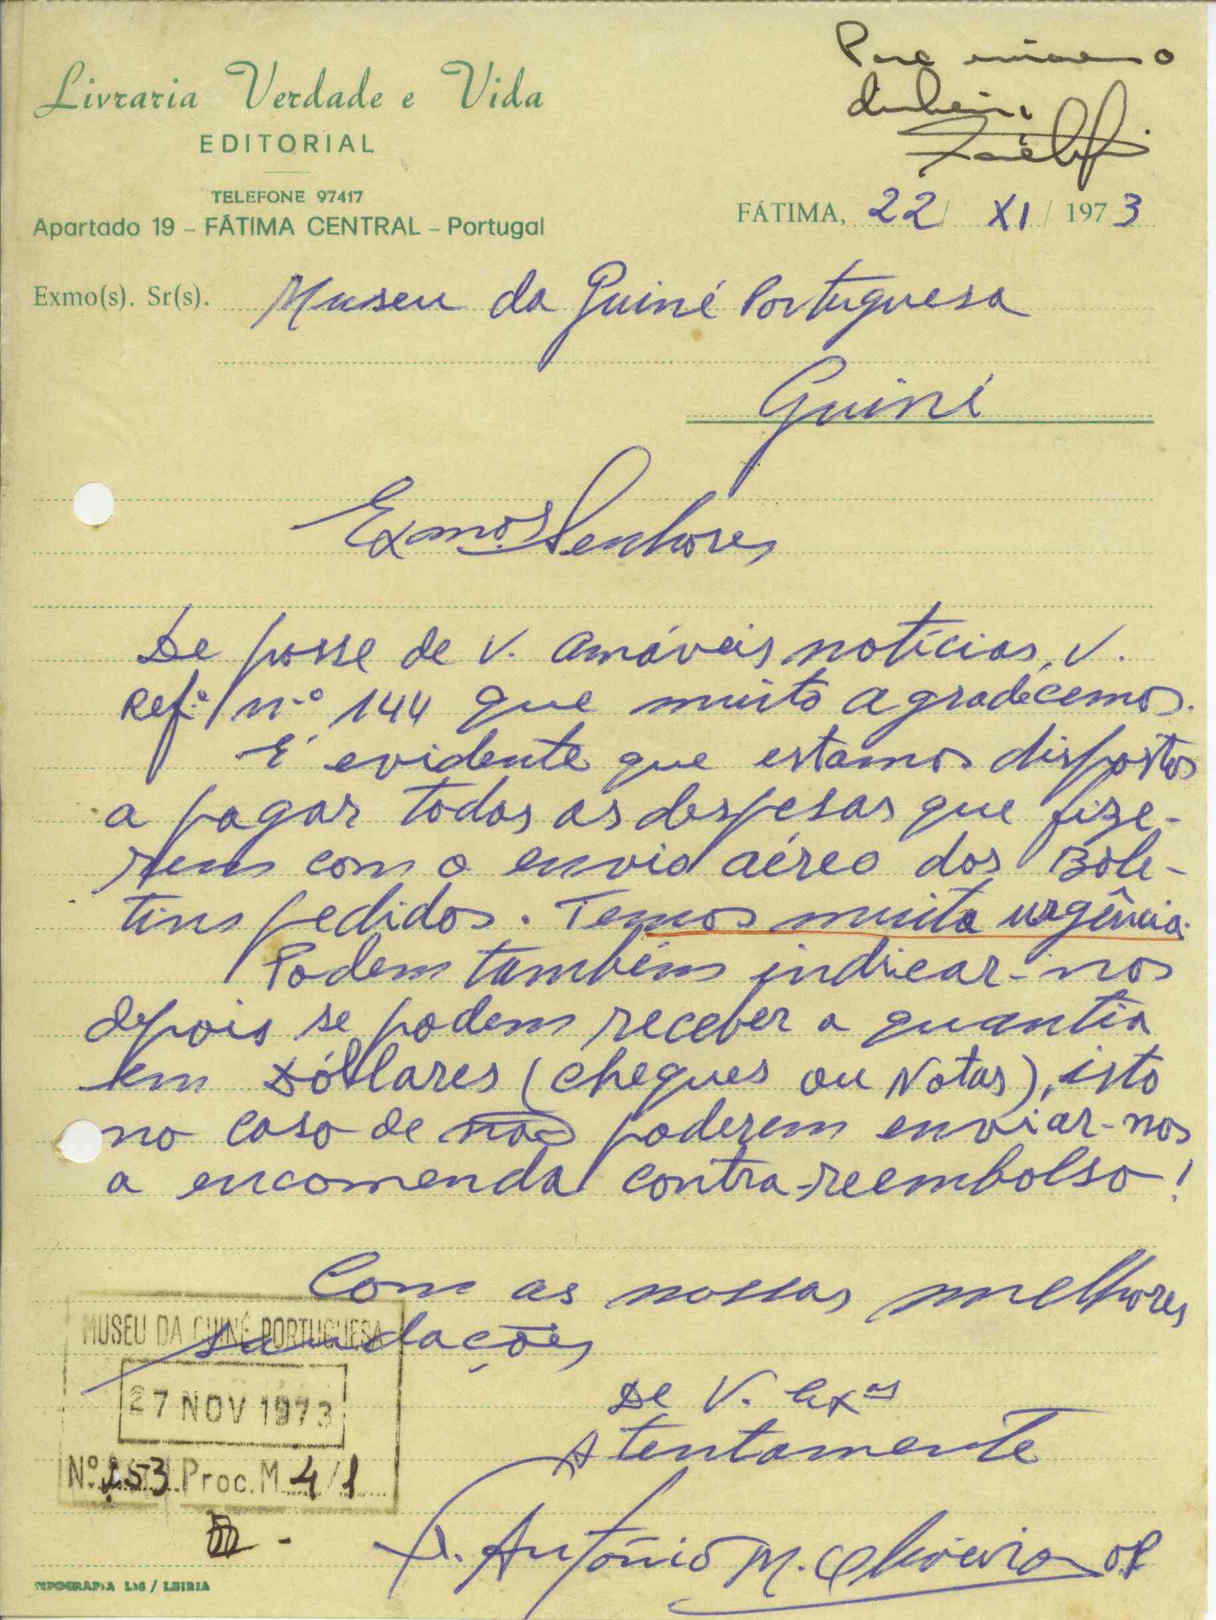 Livraria Verdade e Vida
EDITORIAL
TELEFONE 97417
Apartado 19 – FÁTIMA CENTRAL – Portugal
Para
dinheiro
FÁTIMA, 22 / XI / 1973
Exmo(s). Sr(s). Museu da Guiné Portuguesa
Guiné
Exmos. Senhores
De posse de V. amáveis notícias, V.
Refª. n.º 144 que muito agradecemos.
É evidente que estamos dispostos
a pagar todas as despesas que fize-
rem com o envio aéreo dos Bole-
tins pedidos. Temos muita urgência.
Podem também indicar-nos
depois se podem receber a quantia
em Dóllares (cheques ou Notas), isto
no caso de não poderem enviar-nos
a encomenda contra-reembolso!
Com as nossas melhores
saudações
De V. Exas
Atentamente
Fr. António M. Oliveira O.P.
MUSEU DA GUINÉ PORTUGUESA
27 NOV 1973
N.º 153 Proc. M 4/1
TIPOGRAFIA LIS / LEIRIA